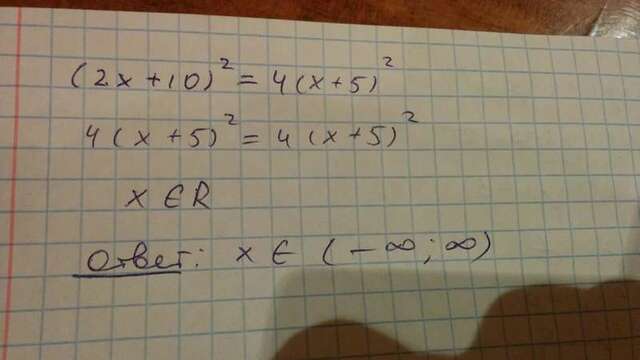 (2x+10)² = 4(x+5)²
4(x+5)² = 4(x+5)²
x ∈ R
Ответ: x ∈ (-∞; ∞)